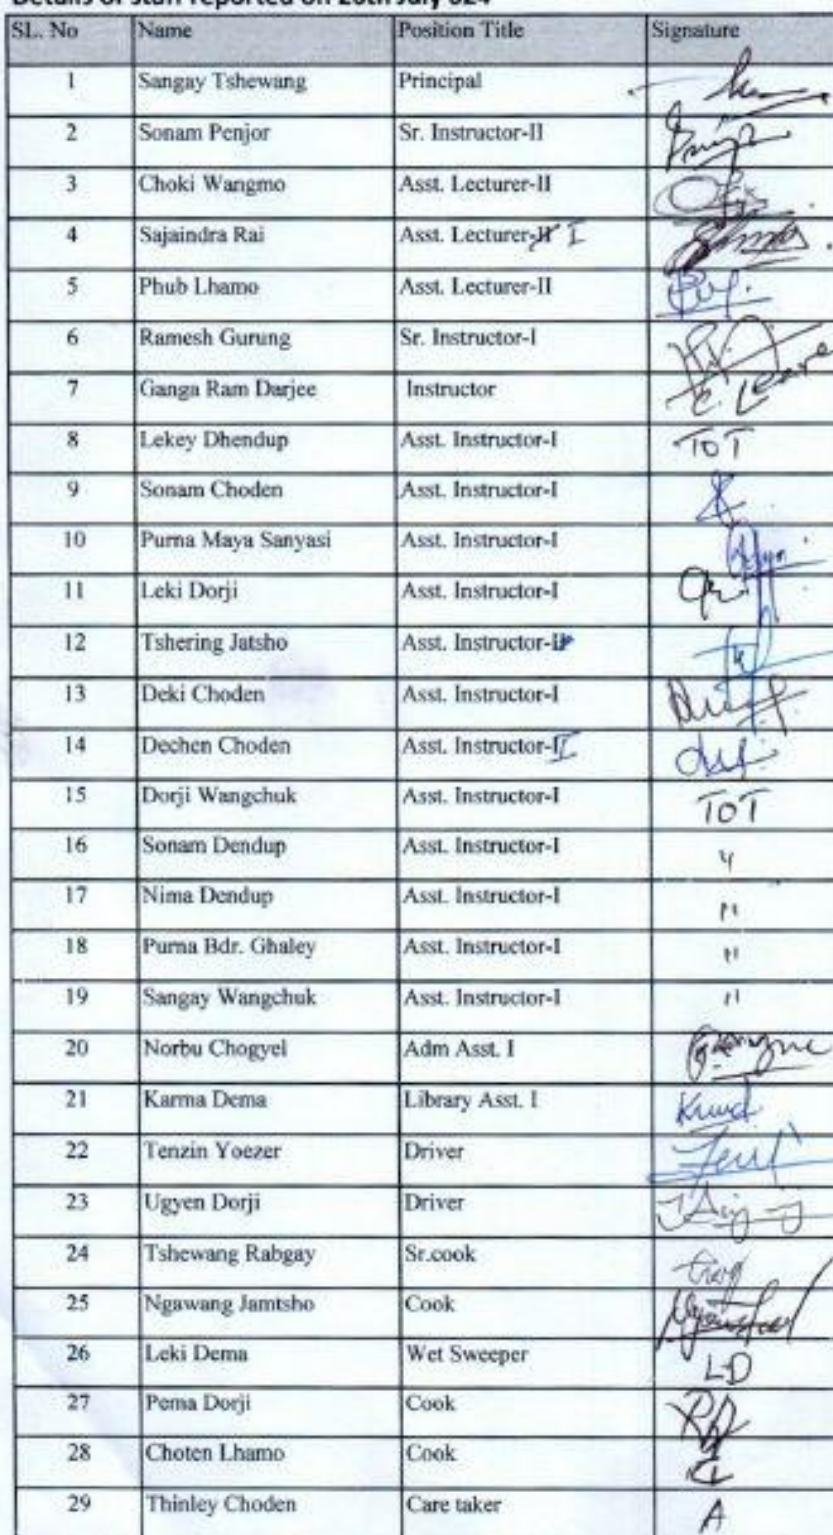 Details of staff reported on 26th July 024
SL. No Name Position Title Signature
1 Sangay Tshewang Principal
2 Sonam Penjor Sr. Instructor-II
3 Choki Wangmo Asst. Lecturer-II
4 Sajaindra Rai Asst. Lecturer-II I
5 Phub Lhamo Asst. Lecturer-II
6 Ramesh Gurung Sr. Instructor-I
7 Ganga Ram Darjee Instructor C. Leave
8 Lekey Dhendup Asst. Instructor-I TOT
9 Sonam Choden Asst. Instructor-I
10 Purna Maya Sanyasi Asst. Instructor-I
11 Leki Dorji Asst. Instructor-I
12 Tshering Jatsho Asst. Instructor-II
13 Deki Choden Asst. Instructor-I
14 Dechen Choden Asst. Instructor-II
15 Dorji Wangchuk Asst. Instructor-I TOT
16 Sonam Dendup Asst. Instructor-I "
17 Nima Dendup Asst. Instructor-I "
18 Purna Bdr. Ghaley Asst. Instructor-I "
19 Sangay Wangchuk Asst. Instructor-I "
20 Norbu Chogyel Adm Asst. I
21 Karma Dema Library Asst. I
22 Tenzin Yoezer Driver
23 Ugyen Dorji Driver
24 Tshewang Rabgay Sr.cook
25 Ngawang Jamtsho Cook
26 Leki Dema Wet Sweeper LD
27 Pema Dorji Cook
28 Choten Lhamo Cook
29 Thinley Choden Care taker A